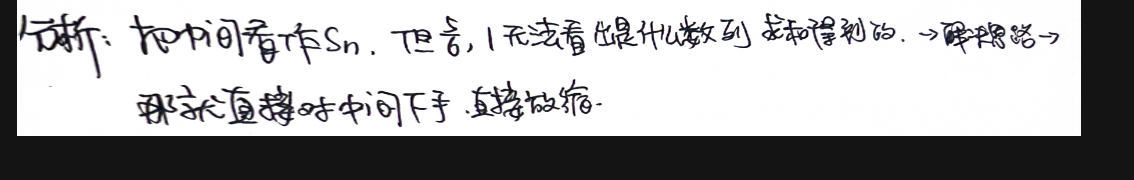 分析：把中间看作Sn．但5/6，1无法看出是什么数列求和得到的．→解题思路→
那就直接对中间下手．直接放缩．